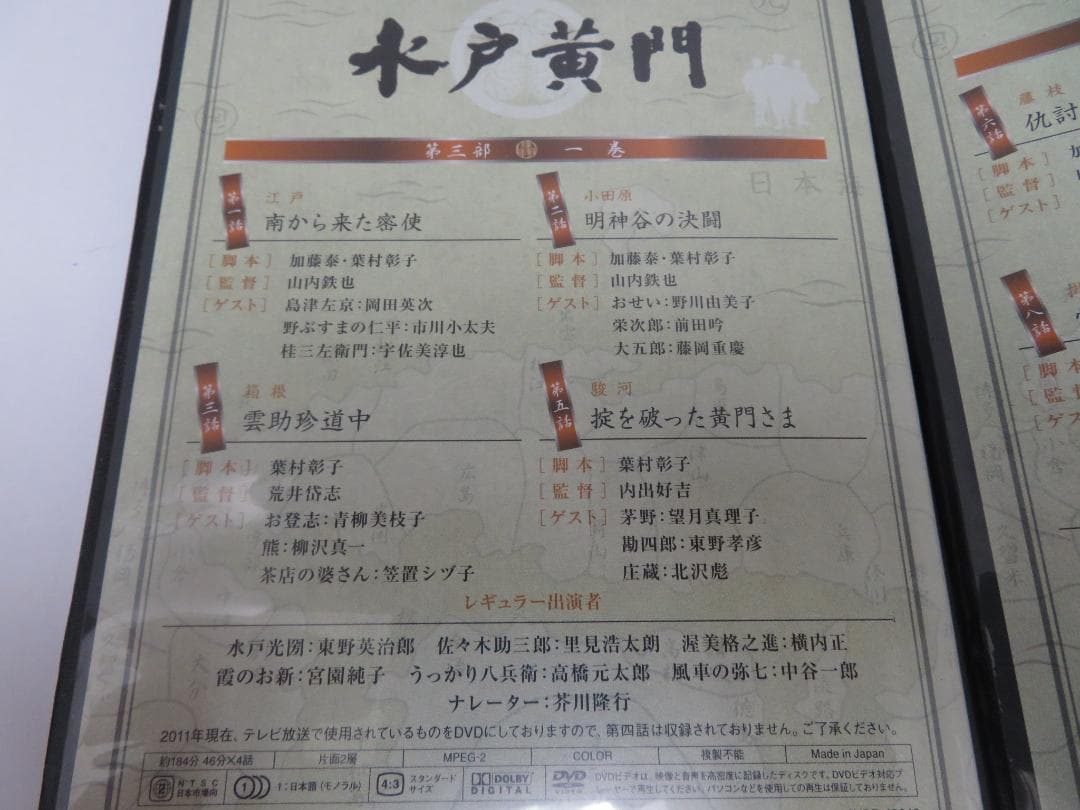 水戸黄門
第三部 一巻
第一話
江戸
南から来た密使
[脚本] 加藤泰・葉村彰子
[監督] 山内鉄也
[ゲスト] 島津左京:岡田英次
野ぶすまの仁平:市川小太夫
桂三左衛門:宇佐美淳也
第二話
小田原
明神谷の決闘
[脚本] 加藤泰・葉村彰子
[監督] 山内鉄也
[ゲスト] おせい:野川由美子
栄次郎:前田吟
大五郎:藤岡重慶
第三話
箱根
雲助珍道中
[脚本] 葉村彰子
[監督] 荒井岱志
[ゲスト] お登志:青柳美枝子
熊:柳沢真一
茶店の婆さん:笠置シヅ子
第五話
駿河
掟を破った黄門さま
[脚本] 葉村彰子
[監督] 内出好吉
[ゲスト] 茅野:望月真理子
勘四郎:東野孝彦
庄蔵:北沢彪
レギュラー出演者
水戸光圀:東野英治郎 佐々木助三郎:里見浩太朗 渥美格之進:横内正
霞のお新:宮園純子 うっかり八兵衛:高橋元太郎 風車の弥七:中谷一郎
ナレーター:芥川隆行
2011年現在、テレビ放送で使用されているものをDVDにしておりますので、第四話は収録されておりません。ご了承ください。
約184分 46分×4話 片面2層 MPEG-2 COLOR 複製不能 Made in Japan
2 NTSC 日本市場向 1 1:日本語(モノラル) 4:3 スタンダードサイズ DOLBY DIGITAL DVD VIDEO DVDビデオは、映像と音声を高密度に記録したディスクです。DVDビデオ対応プ
レーヤーで再生してください。パソコンなどを使用しての再生は保証しておりません。
日本海
第六話
藤枝
仇討
[脚本]
[監督]
[ゲスト]
第八話
[脚本
[監督
[ゲス